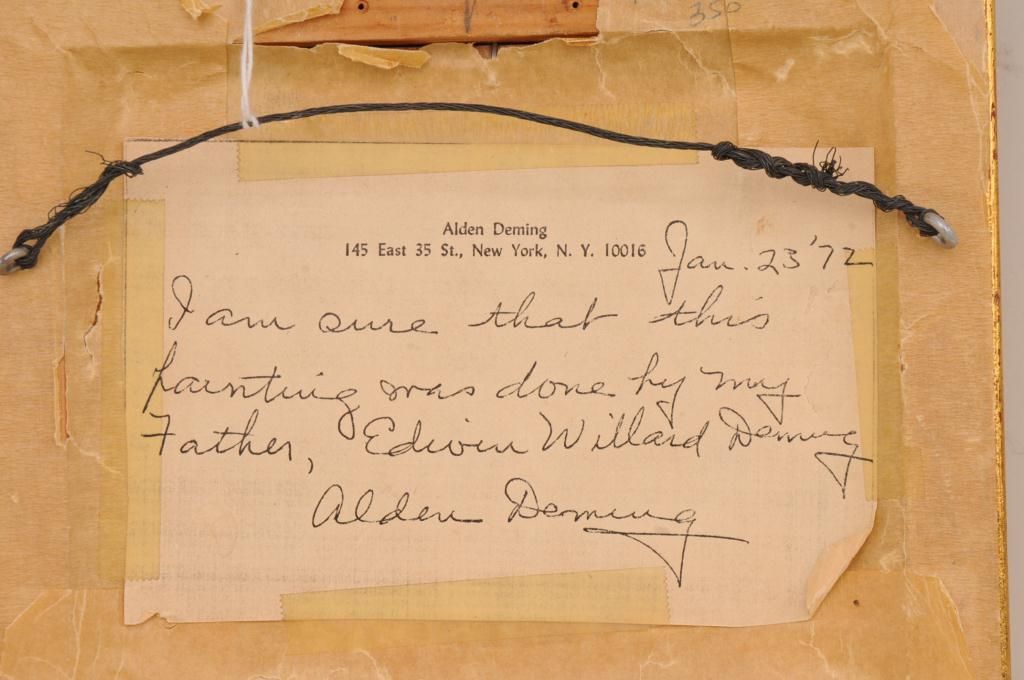 350
Alden Deming
145 East 35 St., New York, N. Y. 10016
Jan. 23 '72
I am sure that this
painting was done by my
Father, Edwin Willard Deming
Alden Deming